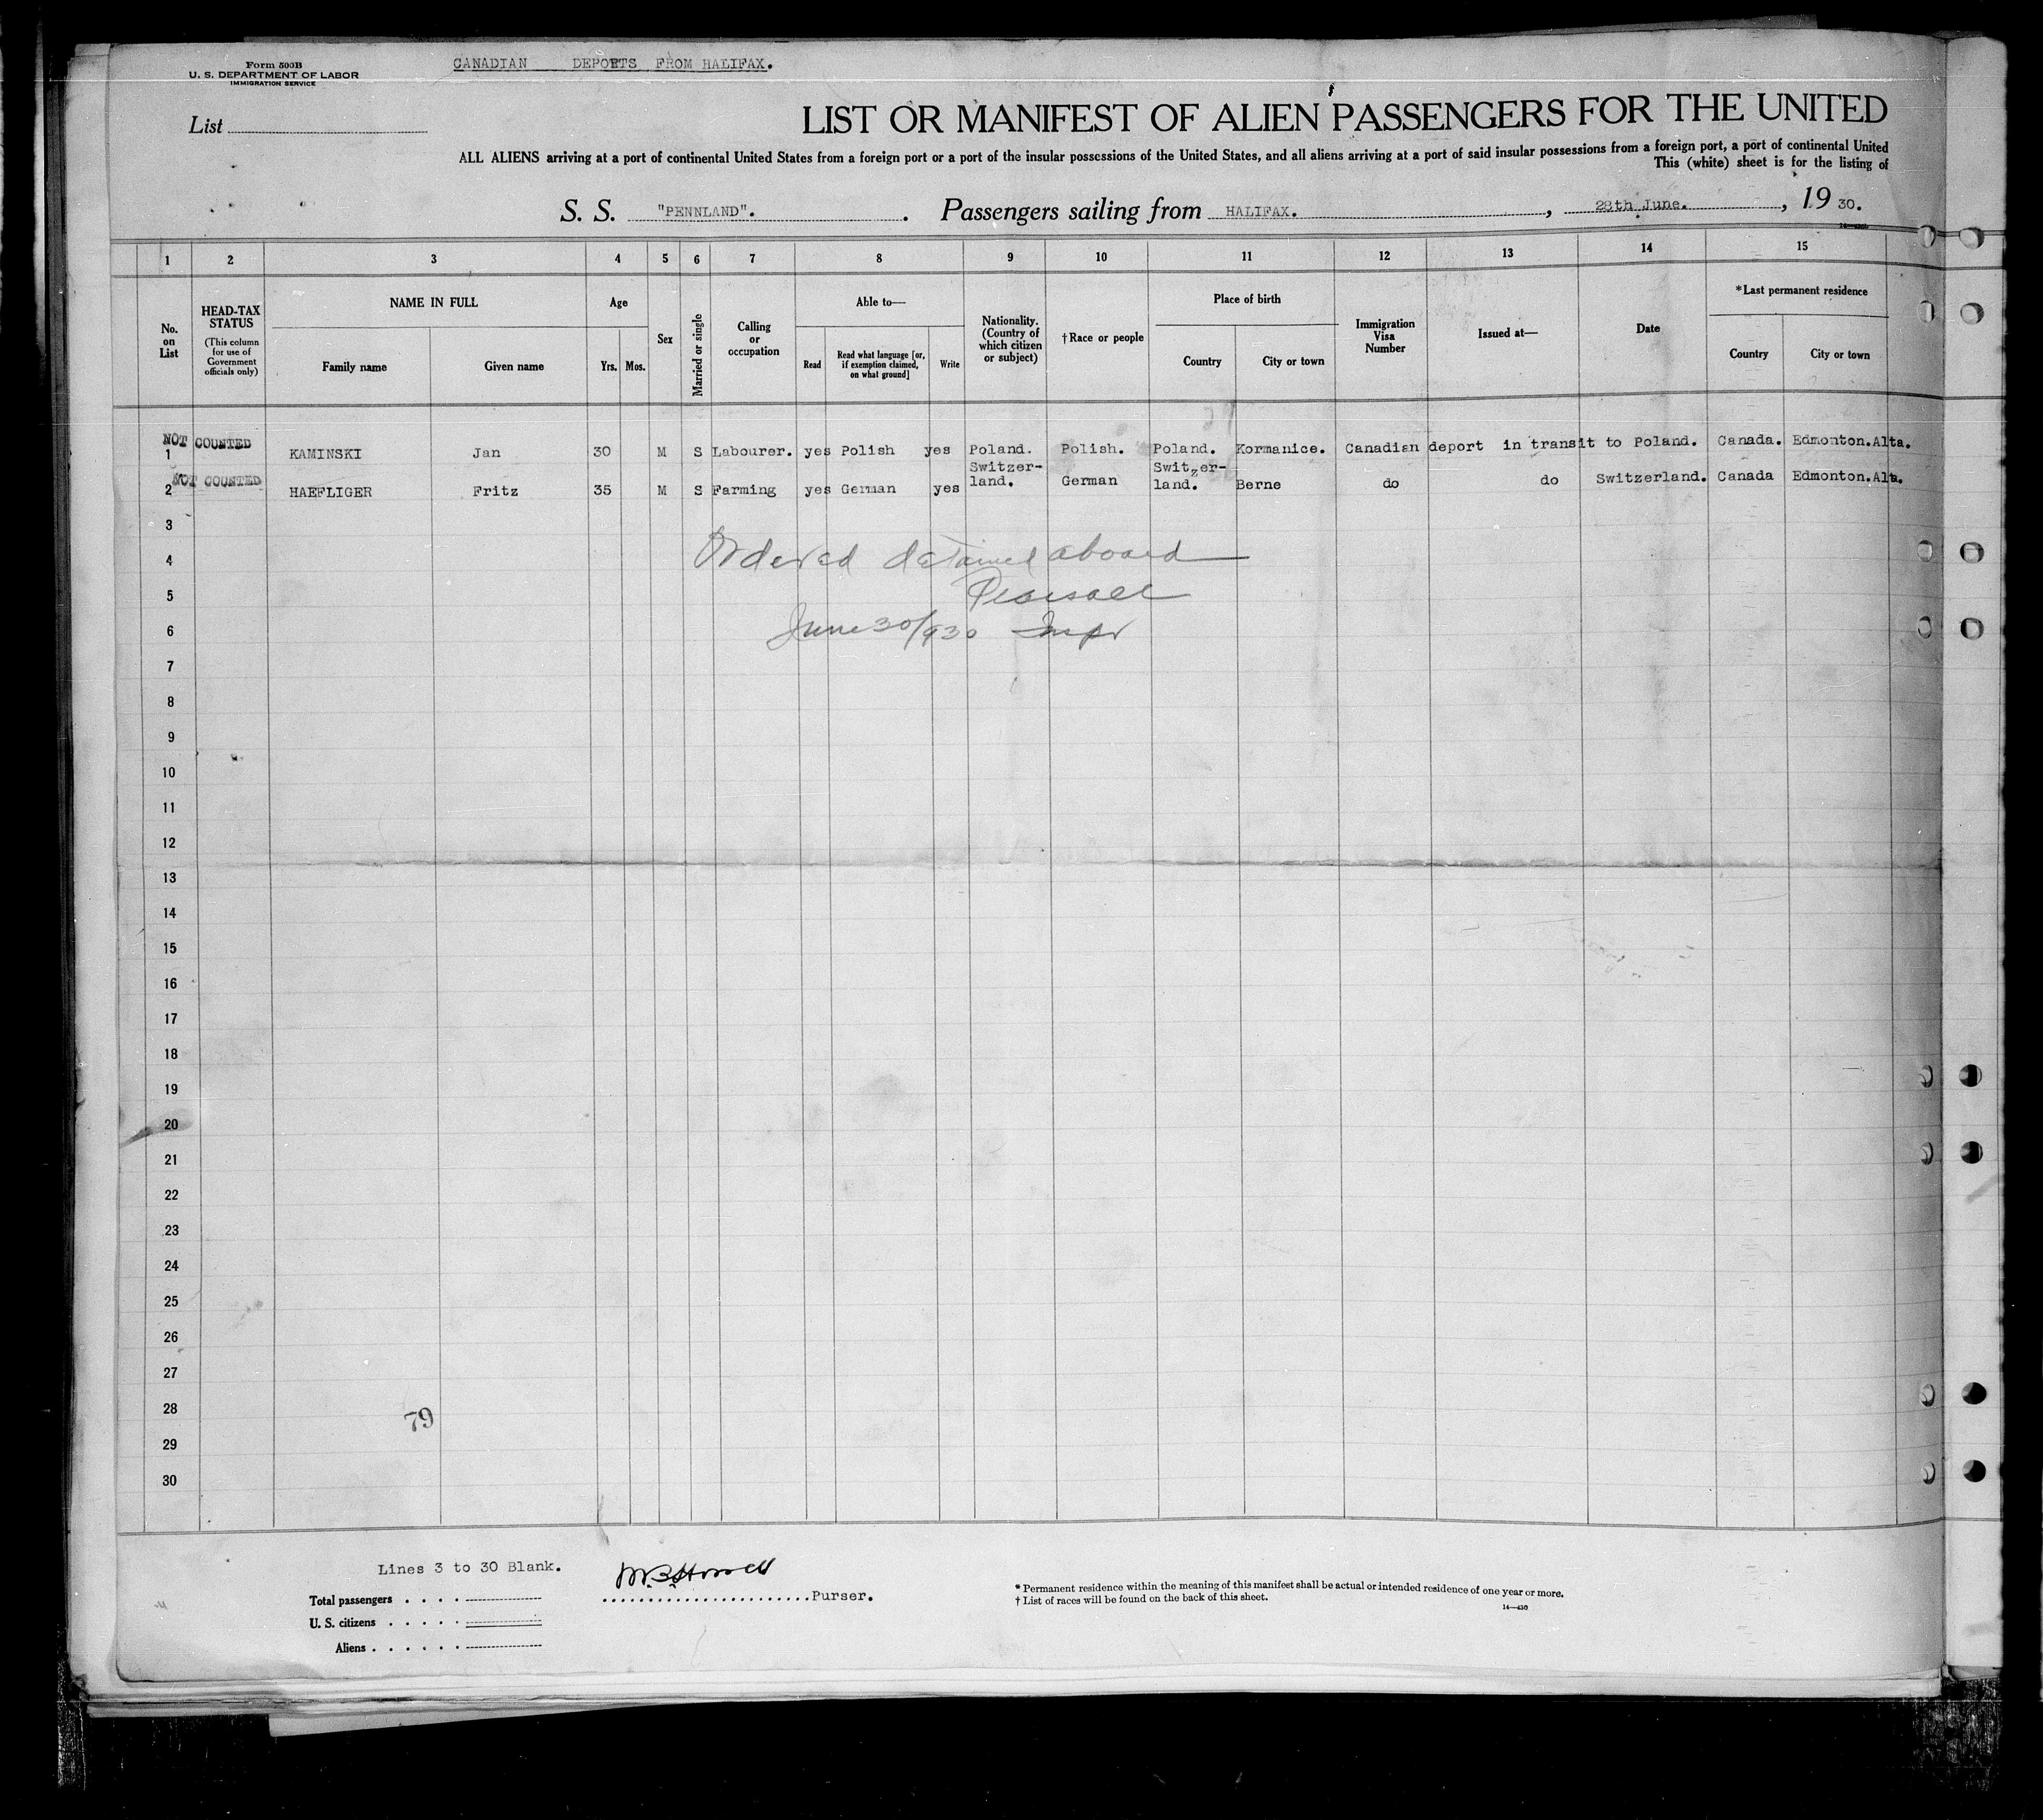 Form 500B
U. S. DEPARTMENT OF LABOR
IMMIGRATION SERVICE
CANADIAN DEPORTS FROM HALIFAX.
List
LIST OR MANIFEST OF ALIEN PASSENGERS FOR THE UNITED
ALL ALIENS arriving at a port of continental United States from a foreign port or a port of the insular possessions of the United States, and all aliens arriving at a port of said insular possessions from a foreign port, a port of continental United
This (white) sheet is for the listing of
S. S. "PENNLAND". . Passengers sailing from HALIFAX. , 28th June. , 19 30.
1 2 3 4 5 6 7 8 9 10 11 12 13 14 15
No. on List
HEAD-TAX STATUS
(This column for use of Government officials only)
NAME IN FULL
Family name Given name
Age
Yrs. Mos.
Sex
Married or single
Calling or occupation
Able to—
Read Read what language [or, if exemption claimed, on what ground] Write
Nationality. (Country of which citizen or subject)
†Race or people
Place of birth
Country City or town
Immigration Visa Number
Issued at—
Date
*Last permanent residence
Country City or town
NOT COUNTED
1 KAMINSKI Jan 30 M S Labourer. yes Polish yes Poland. Polish. Poland. Kormanice. Canadian deport in transit to Poland. Canada. Edmonton.Alta.
NOT COUNTED
2 HAEFLIGER Fritz 35 M S Farming yes German yes Switzer-land. German Switzer-land. Berne do do Switzerland. Canada Edmonton.Alta.
3
4 Ordered detained aboard
5 Pearsall
6 June 30/930 Inspr
7
8
9
10
11
12
13
14
15
16
17
18
19
20
21
22
23
24
25
26
27
28
79
29
30
Lines 3 to 30 Blank.
Total passengers
U. S. citizens
Aliens
Purser.
* Permanent residence within the meaning of this manifest shall be actual or intended residence of one year or more.
† List of races will be found on the back of this sheet.
14—430